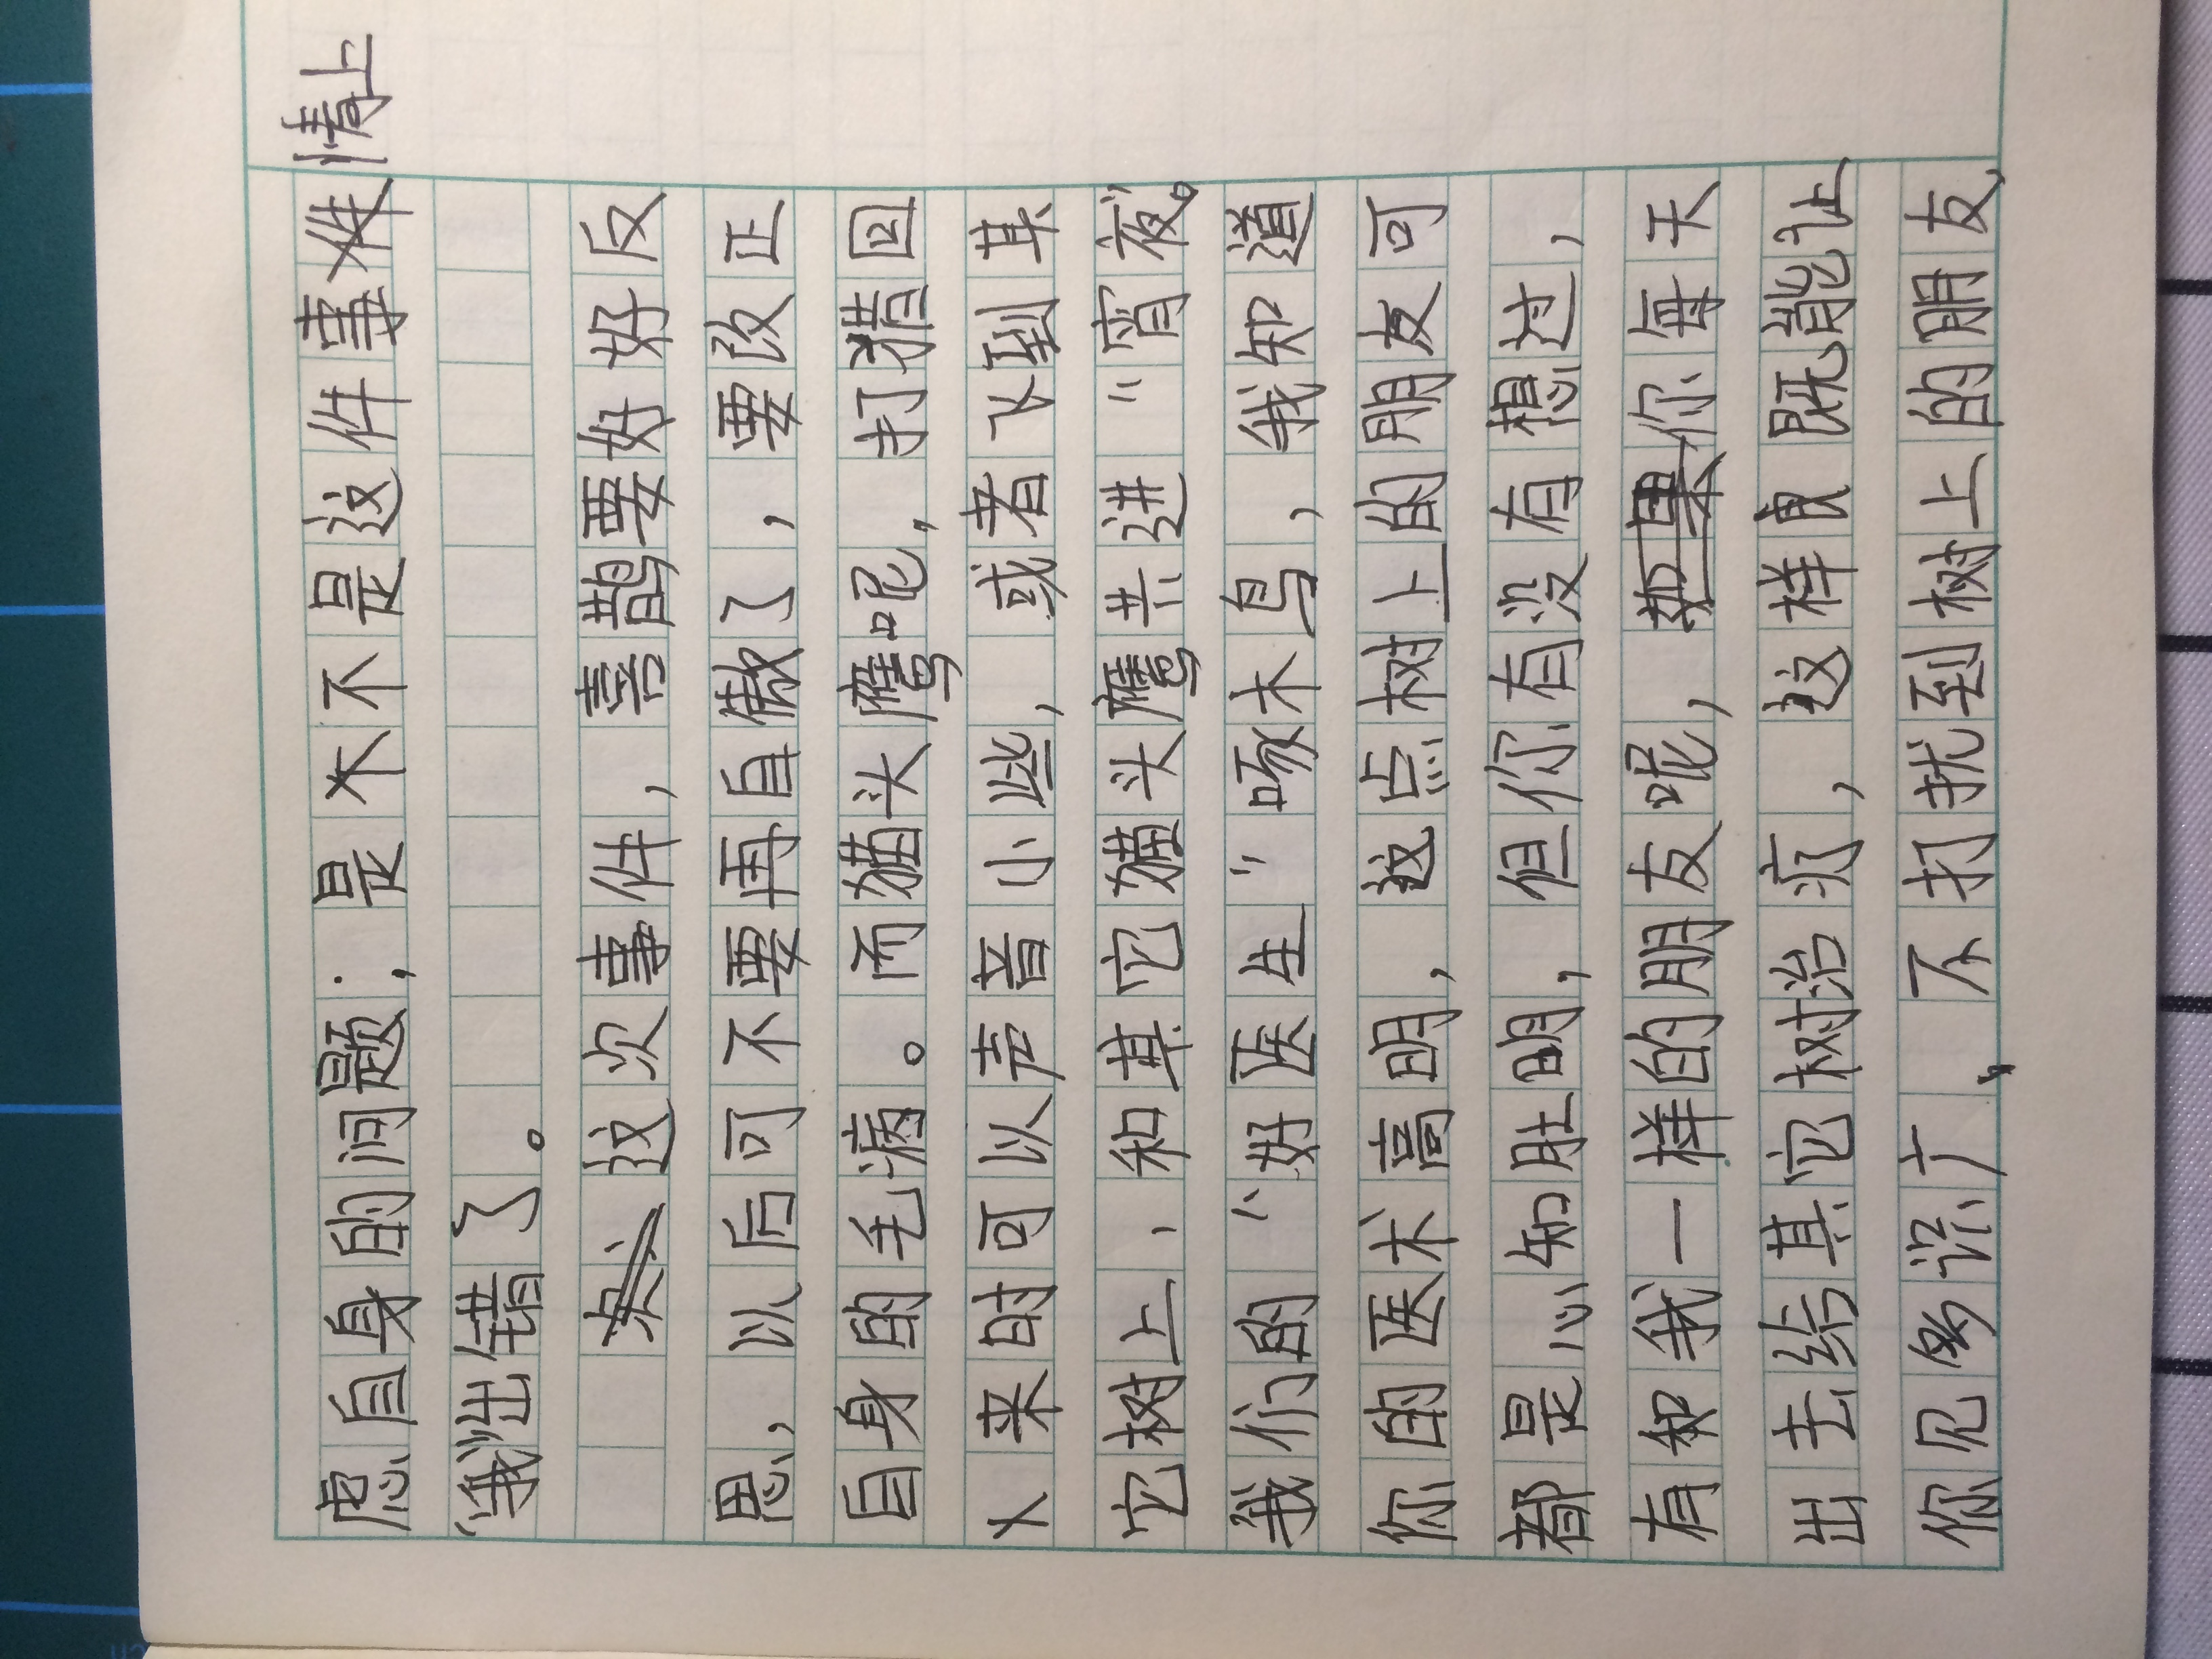 虑自身的问题；是不不是这件事情上
我出错了。
这次事件，喜鹊要好好反
思，以后可不要再自傲了，要改正
自身的毛病。而猫头鹰呢，打猎回
来时可以声音小些，或者飞到其
它树上，和其它猫头鹰共进“宵夜”。
我们的“好医生”啄木鸟，我知道
你的医术高明，这点树上的朋友可
都是心知肚明，但你有没有想过，
有和我一样的朋友呢，你每天
出去给其它树治疗，这样既能让
你见多识广，不打扰到树上的朋友，